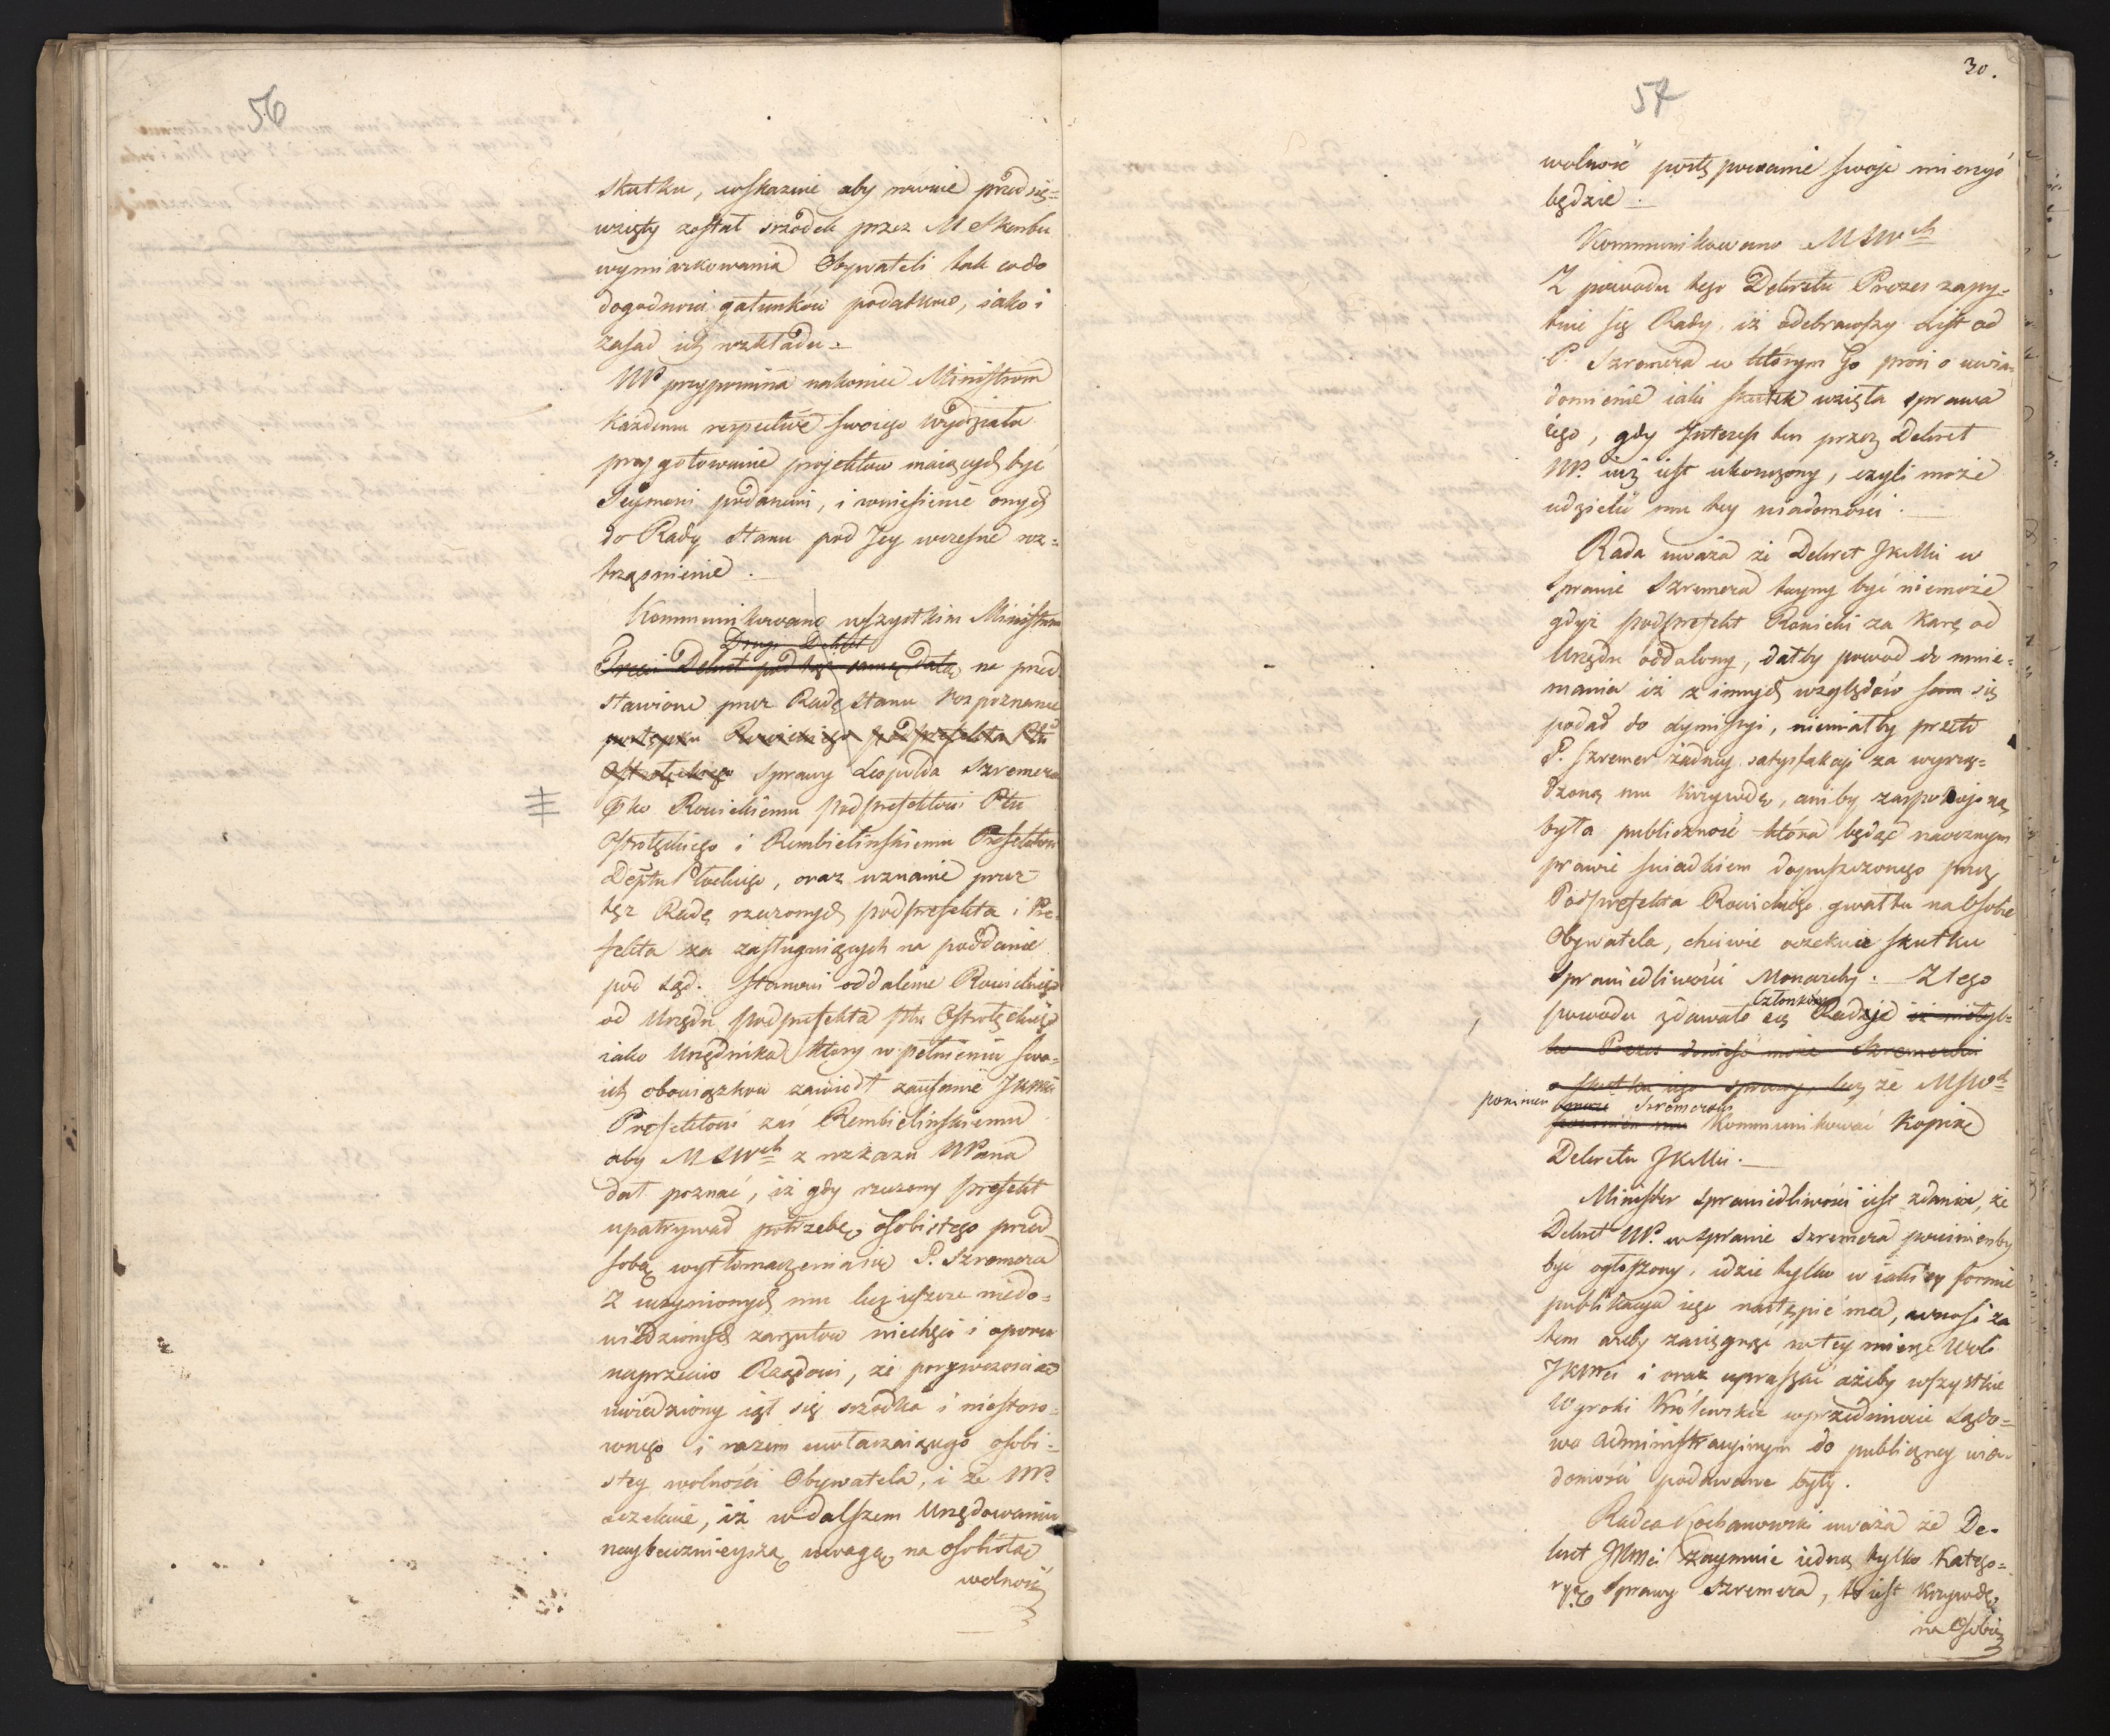 56
skutku, wskazuie aby nowie przedsię=
wzięty został srzodek przez M Skarbu
wymiarkowania Obywateli tak co do
dogodności gatunków podatków, iako i
zasad ich rozkładu.
NP przypomina nakoniec Ministrom
każdemu respective swoiego wydziału
przygotowanie projektow maiących być
Seymowi podanemi, i wniesienie onych
do Rady Stanu pod Jey wczesne roz=
trząsnienie.
Kommunikowano wszystkim Ministrom
Drugi Dekret
Trzeci Dekret pod tąż samą datą na przed
stawione przez Radę Stanu rozpoznanie
postępku Rowickiego podprefekta Pttu
Ostrołęckiego sprawy Leopolda Szremera
Pko Rowickiemu podprefektowi Pttu
Ostrołęckiego i Rembielinskiemu Prefektowi
Deptu Płockiego, oraz uznanie przez
tęż Radę rzeczonych podprefekta i Pre
fekta za zasługuiących na poddanie
pod sąd. Stanowi oddalenie Rowickiego
od Urzędu podprefekta pttu Ostrołęckiego
iako Urzędnika który w pełnieniu swo=
ich obowiązków zawiodł zaufanie JKMci
Prefektowi zaś Rembielinskiemu
aby M S W ch z rozkazu NPana
dał poznać, iż gdy rzeczony prefekt
upatrywał potrzebę osobistego przed
sobą wytłomaczenia się P. Szremera
z uczynionych mu lecz ieszcze niedo=
wiedzionych zarzutow niechęci i oporu
naprzeciw Rządowi, że porywczością
uwiedziony iął się srzodka i niestoso=
wnego i razem uwłaczaiącego osobi=
stey wolności Obywatela, i że NP
oczekuie, iż w dalszem Urzędowaniu
naybacznieyszą uwagę na osobistą
wolność
30.
57
wolność postępowanie swoje mierzyć
będzie.
Kommunikowano MSW ch
Z powodu tego Dekretu Prezes zapy=
tuie się Rady, iż odebrawszy List od
P. Szremera w którym Go prosi o uwia=
domienie iaki skutek wzięła sprawa
iego, gdy Interess ten przez Dekret
NP. iuż iest ukończony, czyli może
udzielić mu tey wiadomości.
Rada uważa że Dekret JKMci w
Sprawie Szremera tayny być niemoże
gdyż podprefekt Rowicki za karę od
Urzędu oddalony, dałby powod do mnie=
mania iż z innych względów sam się
podał do dymissyi, niemiałby przeto
P. Szremer żadney satysfakcyi za wyrzą=
dzoną mu krzywdę, aniby zaspokojoną
była publiczność która będąc naocznym
prawie swiadkiem dopuszczonego przez
Podprefekta Rowickiego gwałtu na Osobie
Obywatela, chciwie oczekuie skutku
sprawiedliwości Monarchy. Z tego
Członkom
powodu zdawało się Radzie iż nietyl=
ko Prezes donieść może Szremerowi
o skutku iego sprawy, lecz że MSW ch
powinien może Szremerowi
powinien mu kommunikować kopiią
Dekretu JKMci.
Minister sprawiedliwości iest zdania, że
Dekret NP. w sprawie Szremera powinienby
być ogłoszony, idzie tylko w iakiey formie
publikacya iego nastąpić ma, wnosi za
tem ażeby zasięgnąć w tey mierze Woli
JKMci i oraz upraszać ażeby wszystkie
Wyroki Królewskie w przedmiocie Sądo=
wo administracyinym do publiczney wia=
domości podawane były.
Radca Kochanowski uważa że De=
kret JKMci zaymuie iedną tylko katego=
ryą Sprawy Szremera, to iest krzywdę
na Osobie